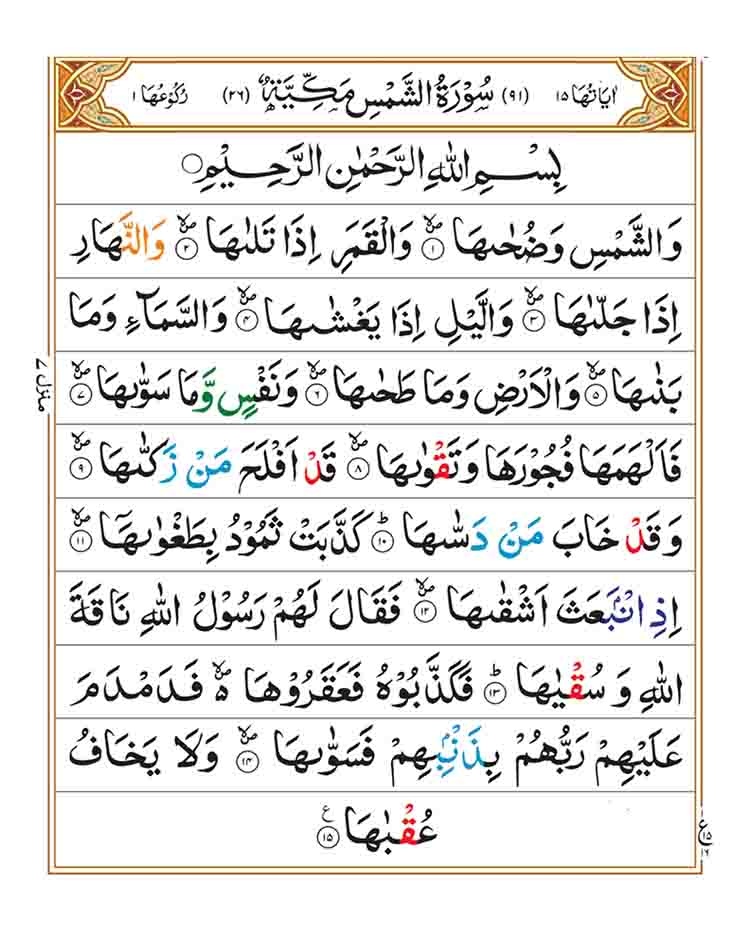 اٰیَاتُهَا ١٥ (٩١) سُوْرَةُ الشَّمْسِ مَكِّيَّةٌ (٢٦) رُكُوْعُهَا ١
بِسْمِ اللّٰهِ الرَّحْمٰنِ الرَّحِيْمِ
وَالشَّمْسِ وَضُحٰىهَا ۪ۙ‏﴿١﴾ وَالْقَمَرِ اِذَا تَلٰىهَا ۪ۙ‏﴿٢﴾ وَالنَّهَارِ
اِذَا جَلّٰىهَا ۪ۙ‏﴿٣﴾ وَالَّيْلِ اِذَا يَغْشٰىهَا ۪ۙ‏﴿٤﴾ وَالسَّمَآءِ وَمَا
بَنٰىهَا ۪ۙ‏﴿٥﴾ وَالْاَرْضِ وَمَا طَحٰىهَا ۪ۙ‏﴿٦﴾ وَنَفْسٍ وَّمَا سَوّٰىهَا ۪ۙ‏﴿٧﴾
فَاَلْهَمَهَا فُجُوْرَهَا وَتَقْوٰىهَا ۪ۙ‏﴿٨﴾ قَدْ اَفْلَحَ مَنْ زَكّٰىهَا ۪ۙ‏﴿٩﴾
وَقَدْ خَابَ مَنْ دَسّٰىهَا ؕ‏﴿١٠﴾ كَذَّبَتْ ثَمُوْدُ بِطَغْوٰىهَاۤ ۪ۙ‏﴿١١﴾
اِذِ انْۢبَعَثَ اَشْقٰىهَا ۪ۙ‏﴿١٢﴾ فَقَالَ لَهُمْ رَسُوْلُ اللّٰهِ نَاقَةَ
اللّٰهِ وَ سُقْيٰهَا ؕ‏﴿١٣﴾ فَكَذَّبُوْهُ فَعَقَرُوْهَا ۪ۙ ۵ فَدَمْدَمَ
عَلَيْهِمْ رَبُّهُمْ بِذَنْۢبِهِمْ فَسَوّٰىهَا ۪ۙ‏﴿١٤﴾ وَلَا يَخَافُ
عُقْبٰهَا ‏﴿١٥﴾ ع
منزل ٧
ع ١٥ ١٦